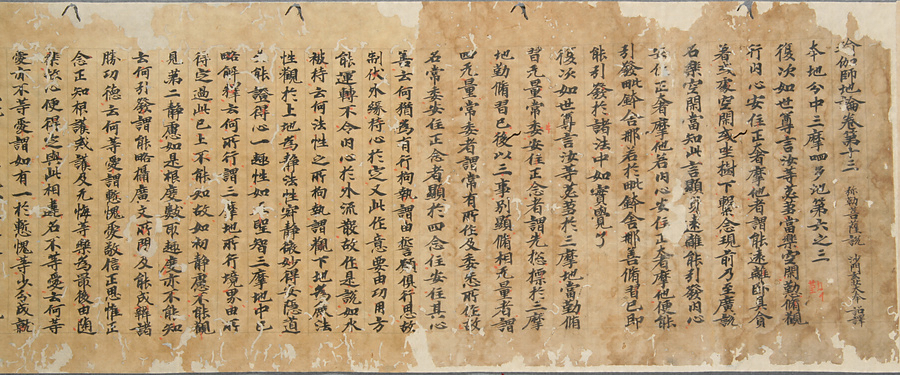 瑜伽師地論卷第十三 弥勒菩薩說 沙門玄奘奉詔譯
本地分中三摩呬多地第六之三
復次如世尊言汝等苾芻當樂空閑勤脩觀
行內心安住正奢摩他者謂能遠離臥具貪
著或處空閑或坐樹下繫念現前乃至廣說
名樂空閑當知此言顯身遠離能引發內心
安住正奢摩他若內心安住正奢摩他便能
引發毗鉢舍那若於毗鉢舍那善脩習已即
能引發於諸法中如實覺了
復次如世尊言汝等苾芻於三摩地當勤脩
習无量常委安住正念者謂先惣標於三摩
地勤脩習已後以三事別顯脩相无量者謂
四无量常委者謂常有所作及委悉所作故
名常委安住正念者顯於四念住安住其心
善云何猶為有行拘執謂由誓願俱行思故
制伏外緣持心於定又此作意要由功用方
能運轉不令內心於外流散故作是說如水
被持云何法性之所拘執謂觀下地為麁法
性觀於上地為靜法性寂靜微妙得安隱道
能證得心一趣性如是聖智三摩地中已
略解釋云何所行謂三摩地所行境界由所
得定過此已上不能知故如初靜慮不能觀
見第二靜慮如是根度數取趣度亦不能知
云何引發謂能略攝廣文所問及能成辦諸
勝功德云何等愛謂慙愧愛敬信正思惟正
念正知根護戒護及无悔等樂為最後由
樂故心便得定與此相違名不等愛云何等
愛亦不等愛謂如有一於慙愧等少分成就